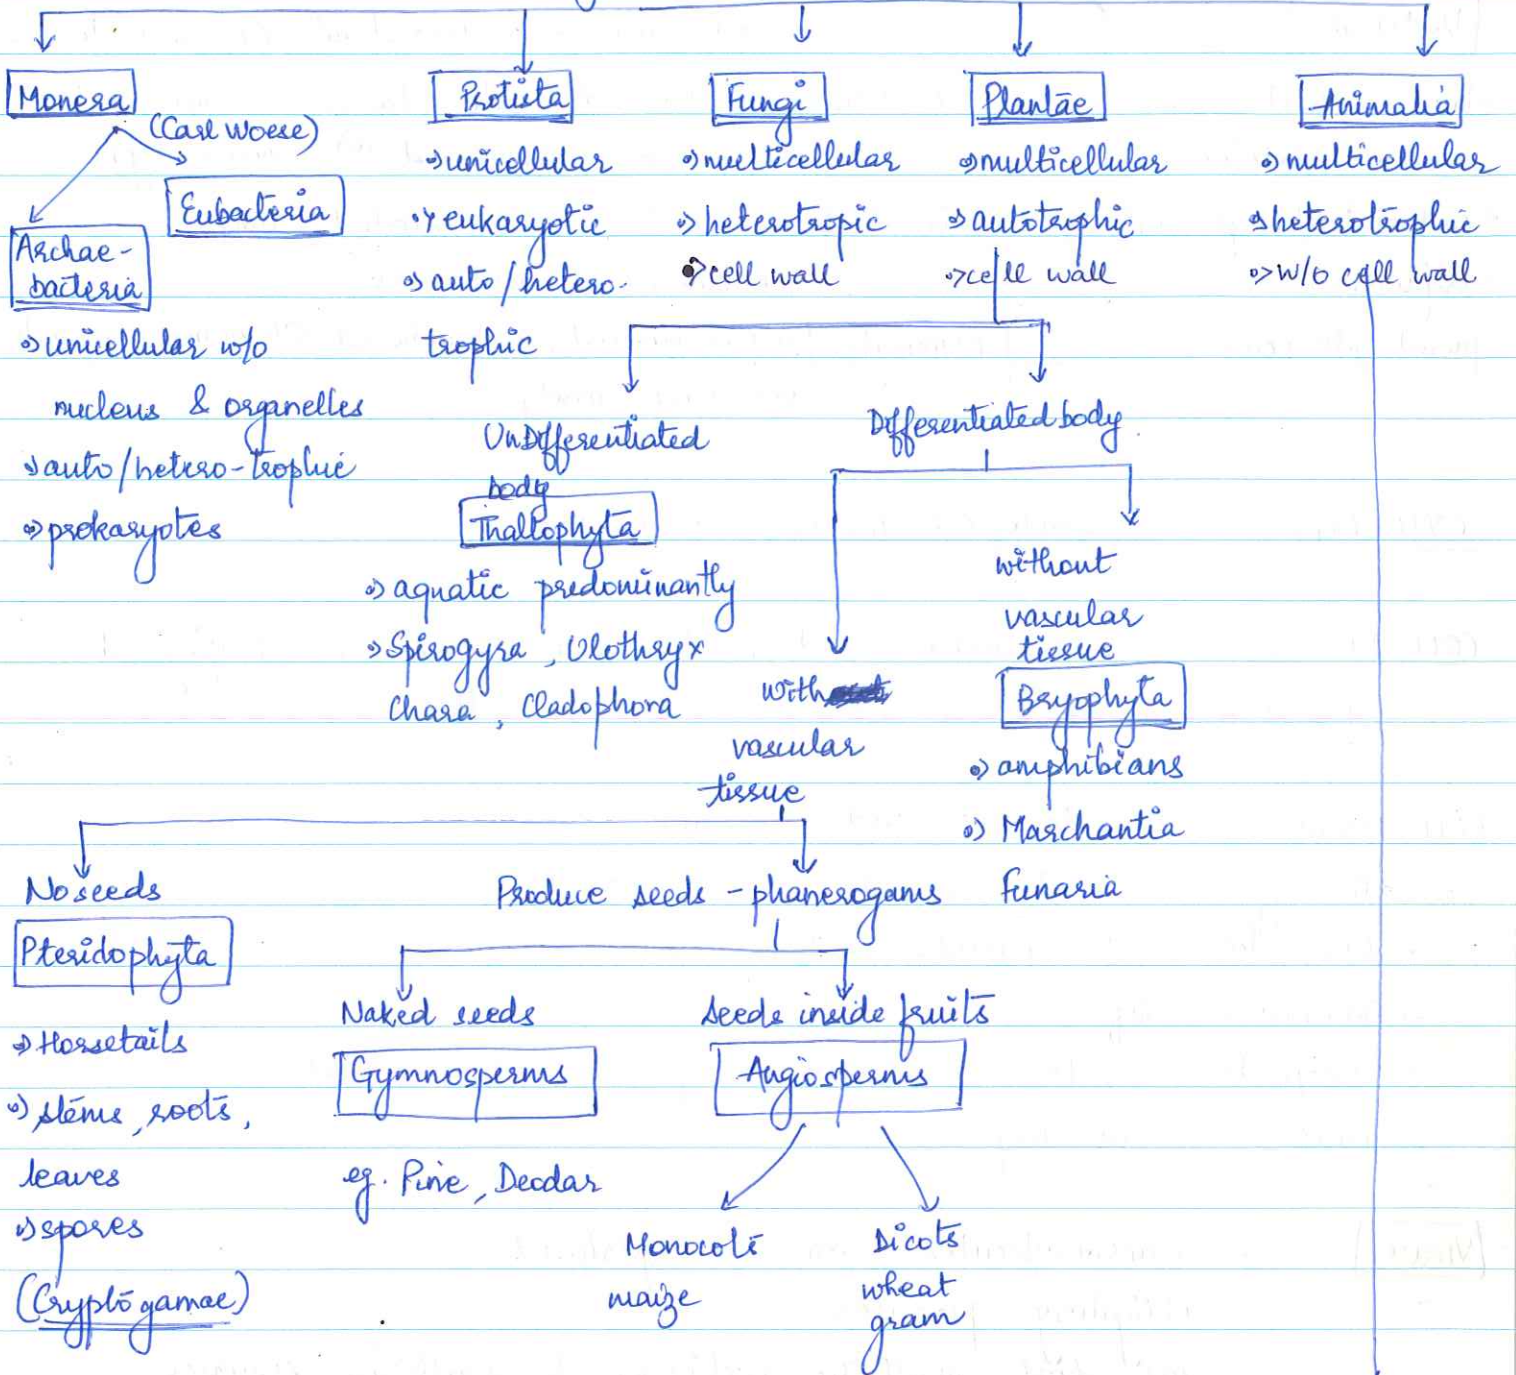 Monera
(Carl Woese)
Eubacteria
Archae-
bacteria
unicellular w/o
nucleus & organelles
auto/hetero-trophic
prokaryotes
Protista
unicellular
eukaryotic
auto/hetero-
trophic
Fungi
multicellular
heterotropic
cell wall
Plantae
multicellular
autotrophic
cell wall
Animalia
multicellular
heterotrophic
w/o cell wall
UnDifferentiated
body
Thallophyta
aquatic predominantly
Spirogyra, Ulothryx
Chara, Cladophora
Differentiated body
with
vascular
tissue
without
vascular
tissue
Bryophyta
amphibians
Marchantia
Funaria
No seeds
Pteridophyta
Horsetails
stems, roots,
leaves
spores
(Cryptogamae)
Produce seeds - phanerogams
Naked seeds
Gymnosperms
eg. Pine, Deodar
seeds inside fruits
Angiosperms
Monocots
maize
Dicots
wheat
gram